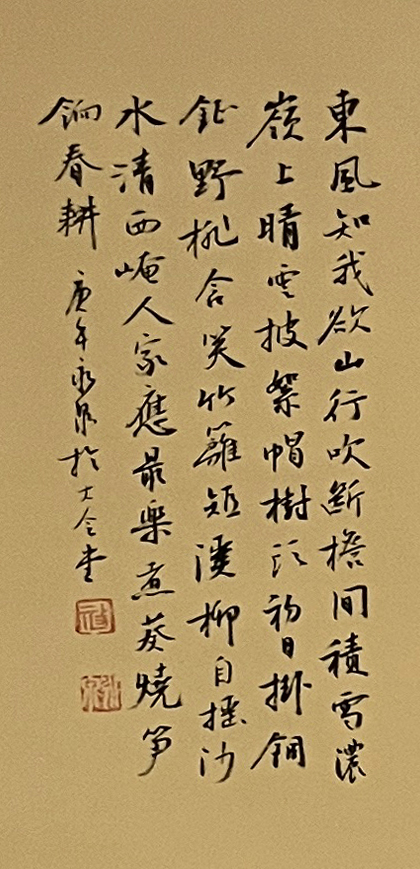 東風知我欲山行吹斷檐間積雪濃
嶺上晴雲披絮帽樹頭初日掛銅
鉦野桃含笑竹籬短溪柳自搖沙
水清西崦人家應最樂煮葵燒筍
餉春耕 庚午永泉於